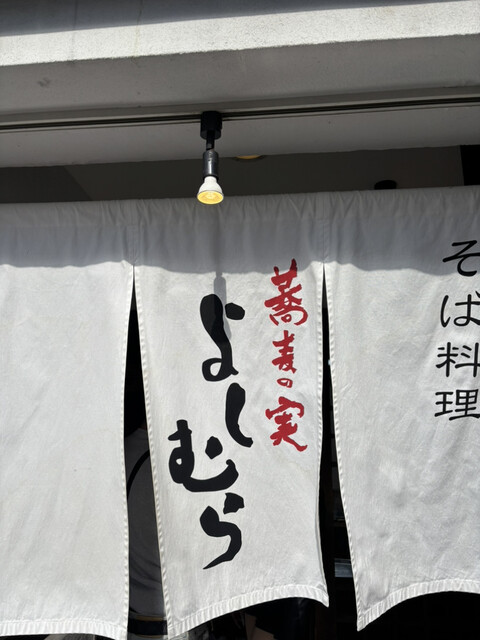 そば料理
蕎麦の実
よしむら